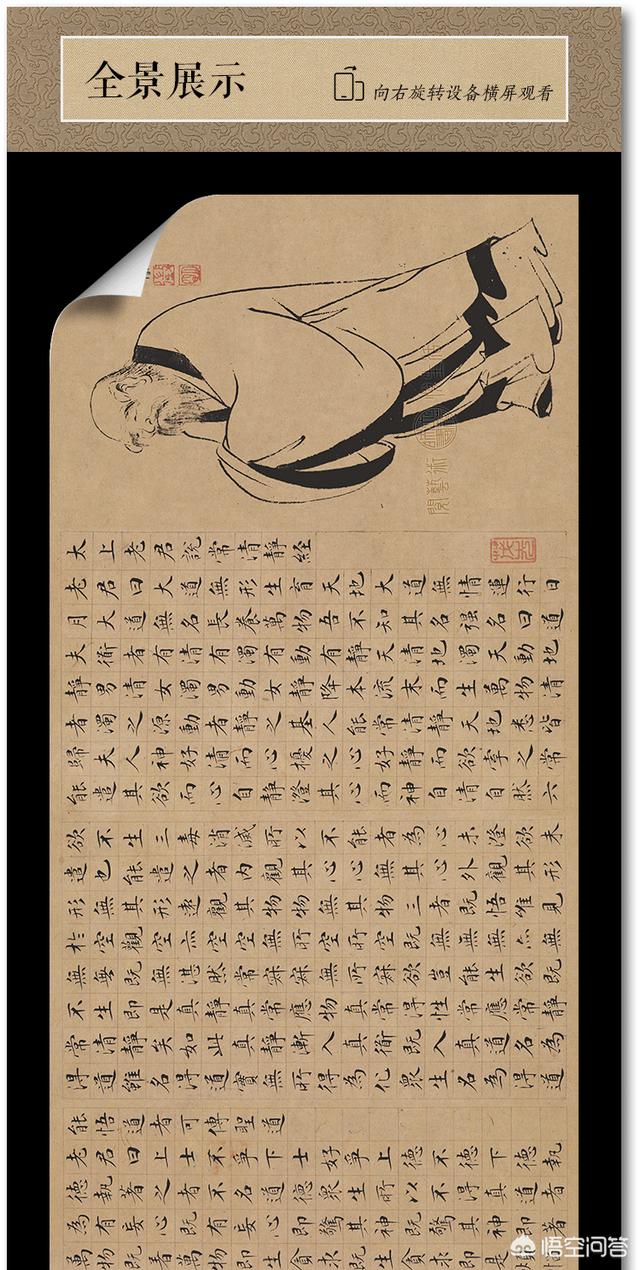 全景展示
向右旋转设备横屏观看
太上老君說常清靜經
老君曰大道無形生育天地大道無情運行日
月大道無名長養萬物吾不知其名强名曰道
夫衜者有清有濁有動有靜天清地濁天動地
靜男清女濁男動女靜降本流末而生萬物清
者濁之源動者靜之基人能常清靜天地悉皆
歸夫人神好清而心擾之人心好靜而欲牽之常
能遣其欲而心自靜澄其心而神自清自然六
欲不生三毒消滅所以不能者為心未澄欲未
遣也能遣之者内觀其心心無其心外觀其形
形無其形遠觀其物物無其物三者既悟唯見
於空觀空亦空空無所空所空既無無無亦無
無無既無湛然常寂寂無所寂欲豈能生欲既
不生即是真靜真常應物真常得性常應常靜
常清靜矣如此真靜漸入真衜既入真道名為
得道雖名得道實無所得為化眾生名為得道
能悟道者可傳聖道
老君曰上士不爭下士好爭上德不德下德執
德執著之者不名道德眾生所以不得真道者
為有妄心既有妄心即驚其神既驚其神即著
萬物既著萬物即生貪求既生貪求即是
悟空问答